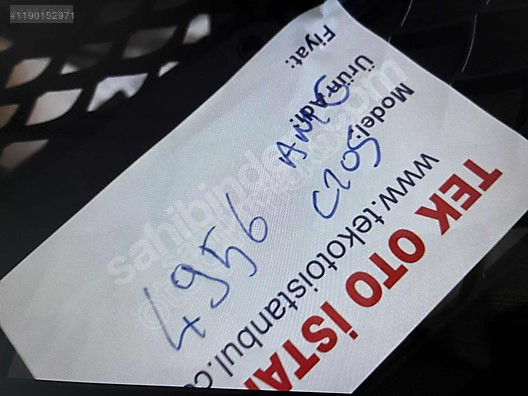 #1190152971
TEK OTO İSTAN
www.tekotoistanbul.co
Model: C205
Ürün Adı:
Fiyat:
4956
sahibinden.com